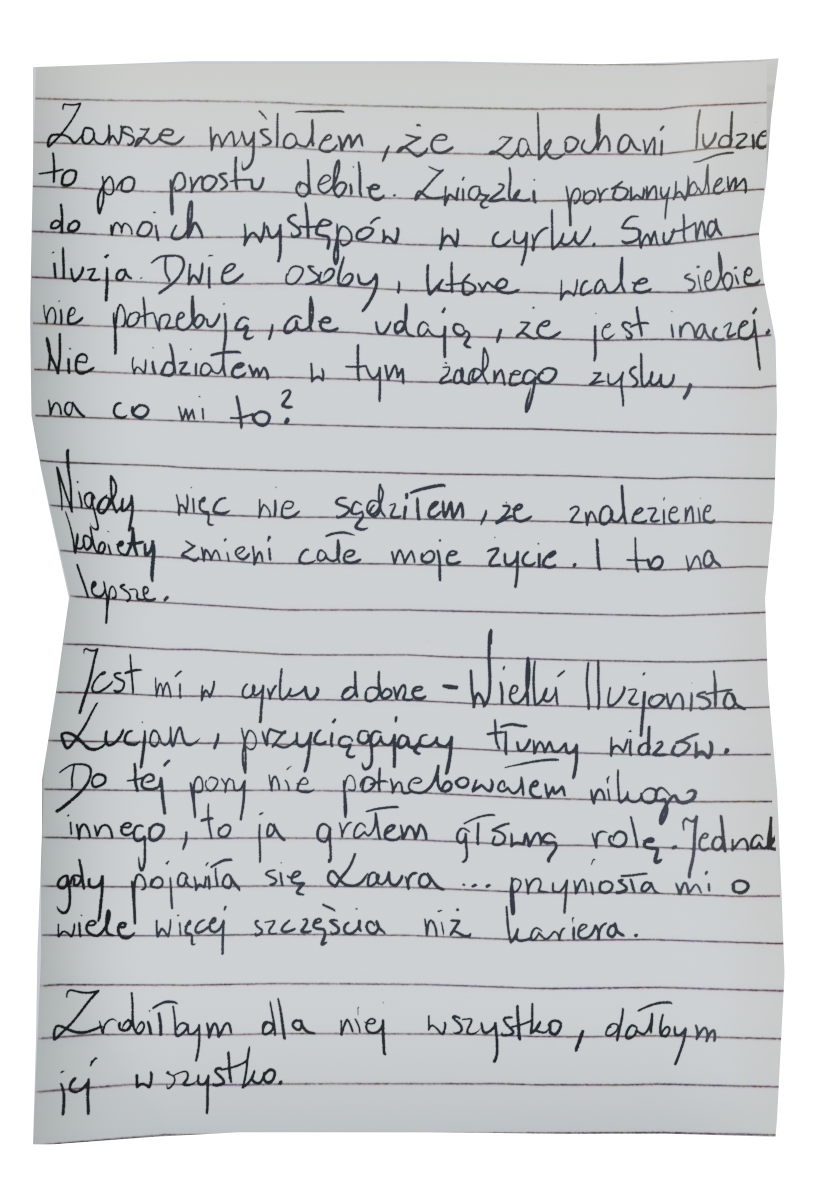 Zawsze myślałem, że zakochani ludzie
to po prostu debile. Związki porównywałem
do moich występów w cyrku. Smutna
iluzja. Dwie osoby, które wcale siebie
nie potrzebują, ale udają, że jest inaczej.
Nie widziałem w tym żadnego zysku,
na co mi to?
Nigdy więc nie sądziłem, że znalezienie
kobiety zmieni całe moje życie. I to na
lepsze.
Jest mi w cyrku dobrze - Wielki Iluzjonista
Lucjan, przyciągający tłumy widzów.
Do tej pory nie potrzebowałem nikogo
innego, to ja grałem główną rolę. Jednak
gdy pojawiła się Laura ... przyniosła mi o
wiele więcej szczęścia niż kariera.
Zrobiłbym dla niej wszystko, dałbym
jej wszystko.